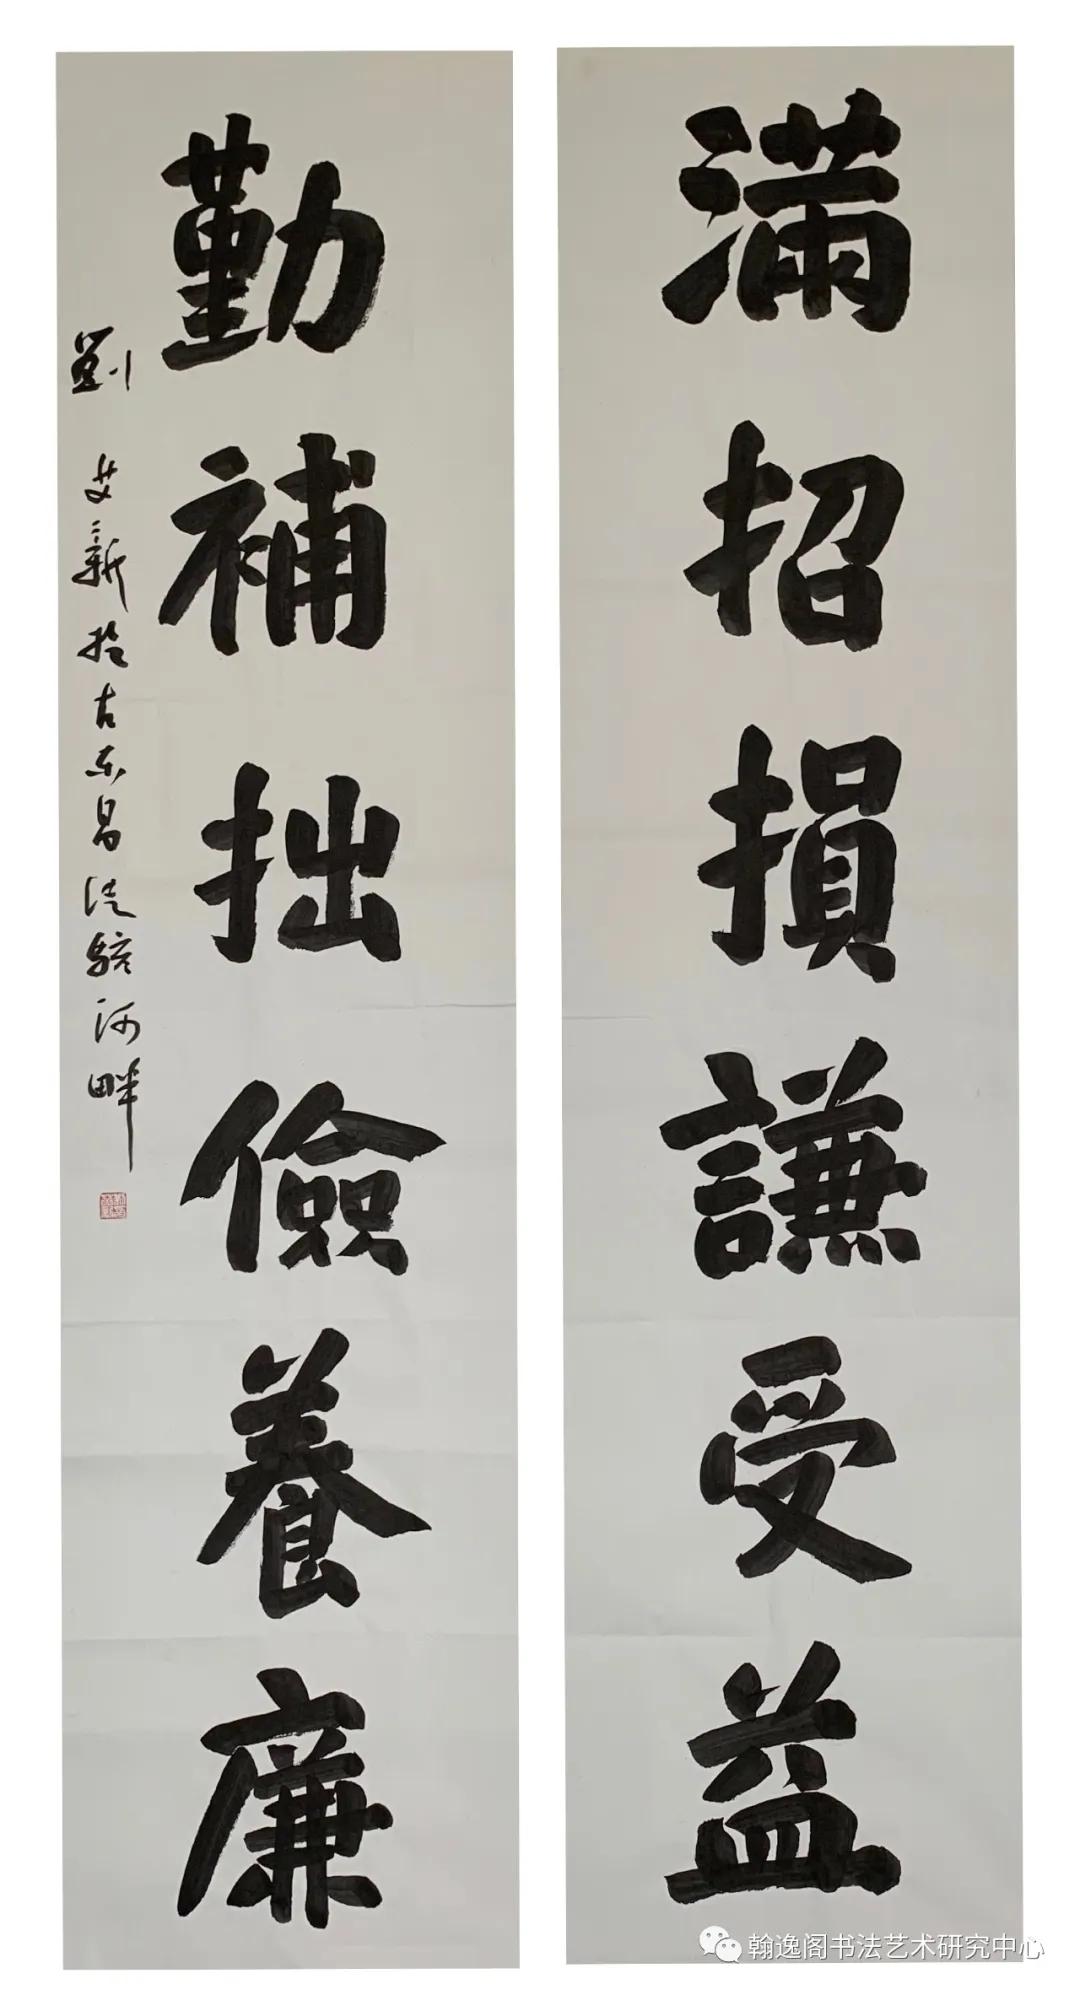 滿招損謙受益
勤補拙儉養廉
劉艾新於古東昌徒駭河畔
翰逸阁书法艺术研究中心